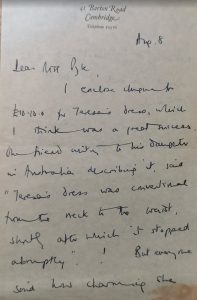 41 Barton Road
Cambridge
Aug. 8
Dear Miss Pyke,
I enclose cheque for
£10.10.0 for Teresa's dress, which
I think was a great success.
One friend writing to his daughter
in Australia describing it, said
"Teresa's dress was conventional
from the neck to the waist,
shortly after which it stopped
abruptly" ! But everyone
said how charming she